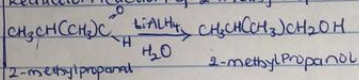 CH3CH(CH3)C=O H LiAlH4 H2O CH3CH(CH3)CH2OH
2-methylpropanal 2-methylPropanol